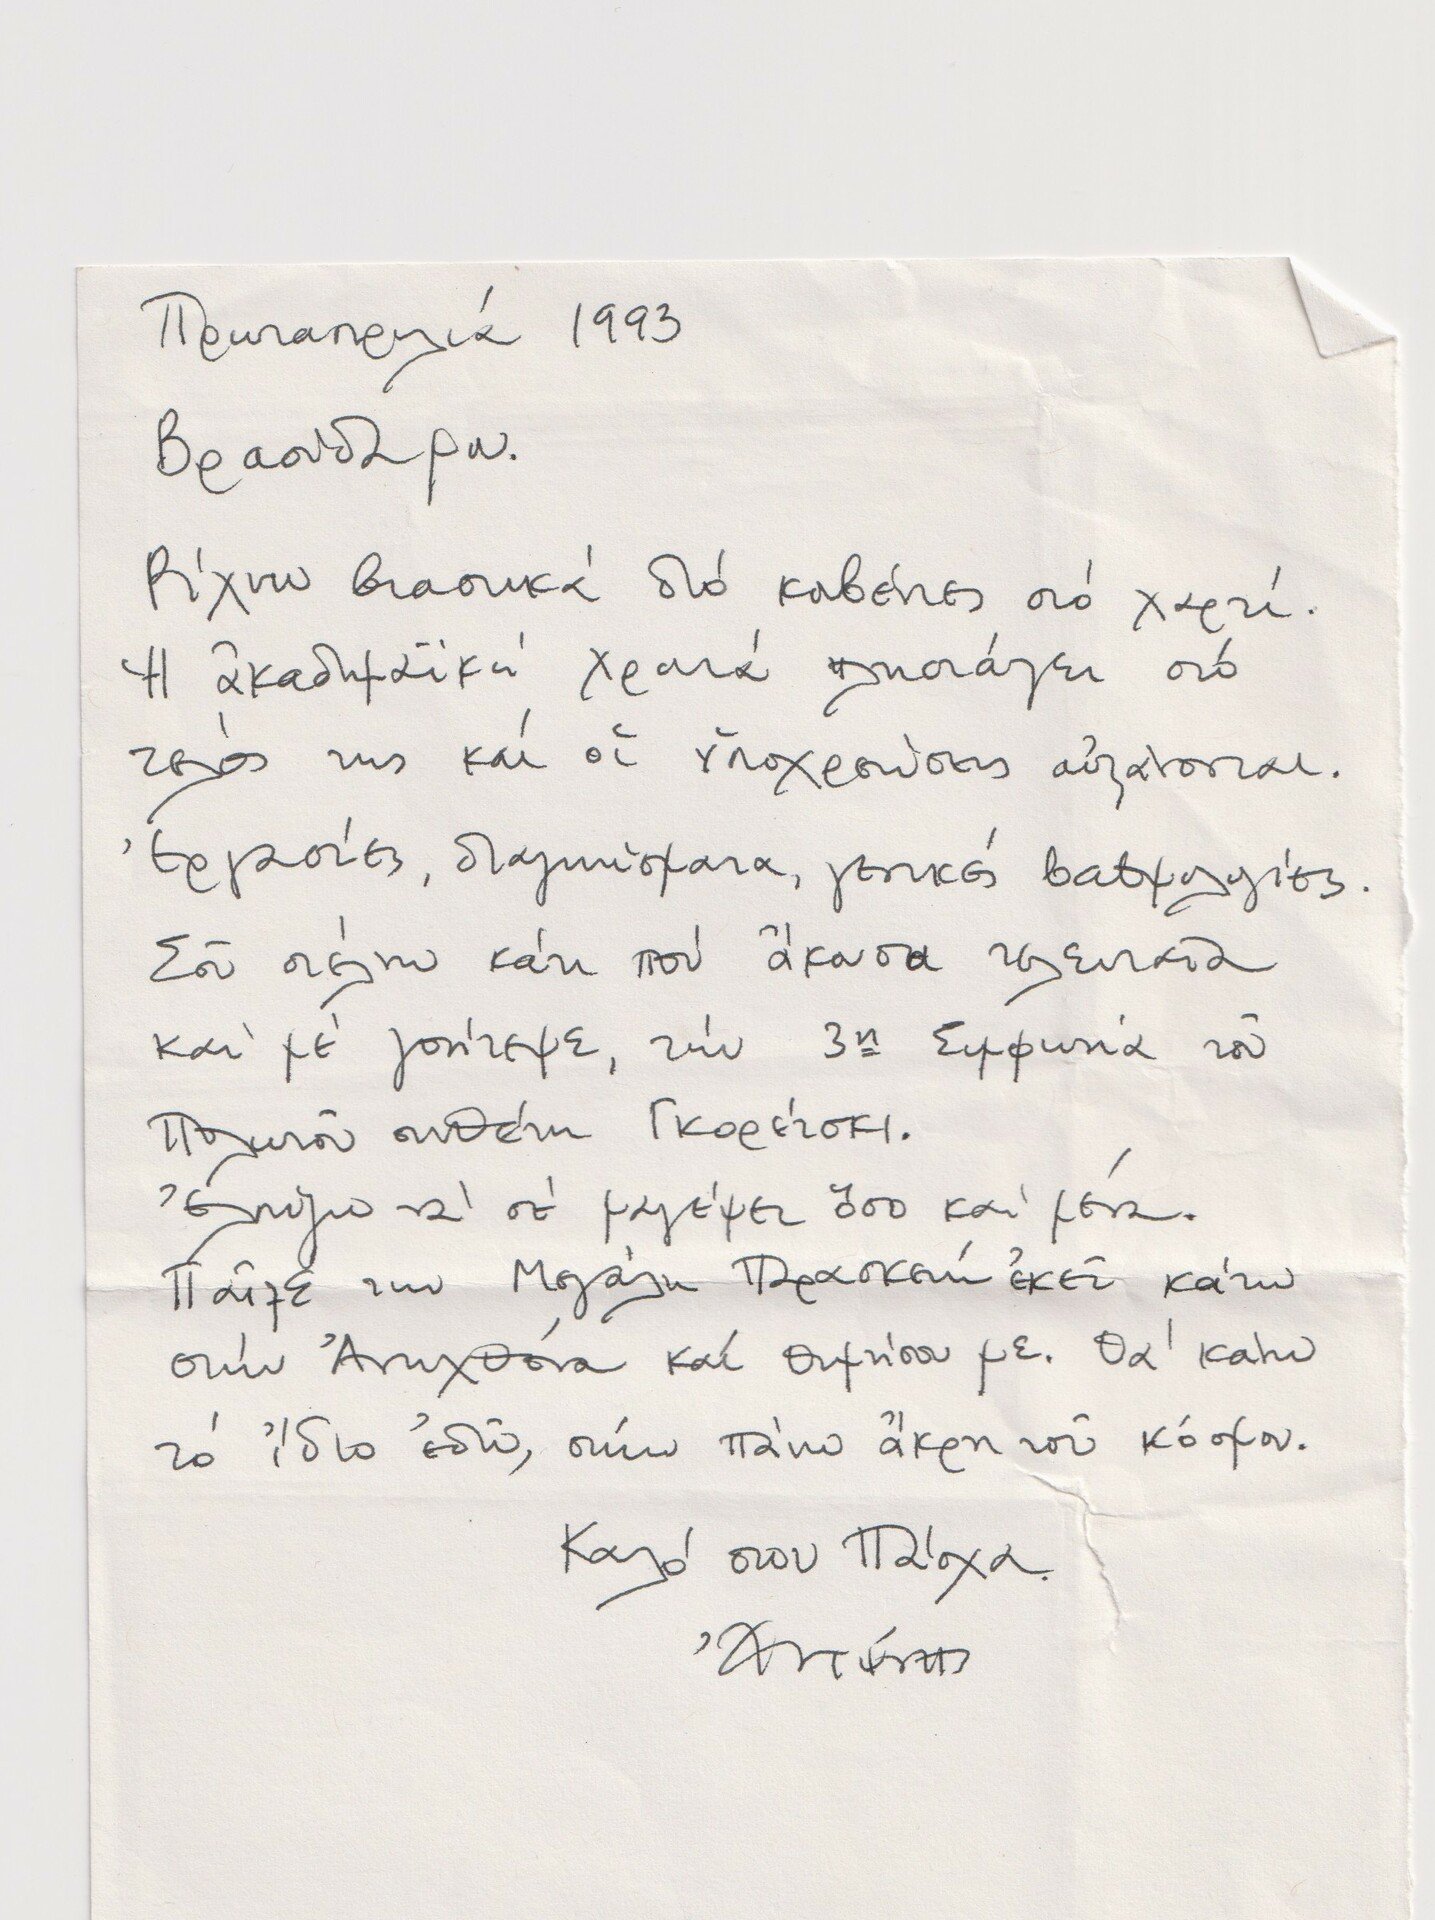 Πρωταπριλιά 1993
Βρασίδα μου.
Ρίχνω βιαστικά δυό κουβέντες στό χαρτί.
Ἡ ἀκαδημαϊκή χρονιά πλησιάζει στό
τέλος της καί οἱ ὑποχρεώσεις αὐξάνονται.
Ἐργασίες, διαγωνίσματα, γενικές βαθμολογίες.
Σοῦ στέλνω κάτι πού ἄκουσα τελευταῖα
καί μέ γοήτεψε, τήν 3η Συμφωνία τοῦ
Πολωνοῦ συνθέτη Γκορέτσκι.
Ἐλπίζω νά σέ μαγέψει ὅσο καί μένα.
Παῖξε την Μεγάλη Παρασκευή ἐκεῖ κάτω
στήν Ἀντίχθονα καί θυμήσου με. Θά κάνω
τό ἴδιο ἐδῶ, στήν πάνω ἄκρη τοῦ κόσμου.
Καλό σου Πάσχα.
Ἀντώνης